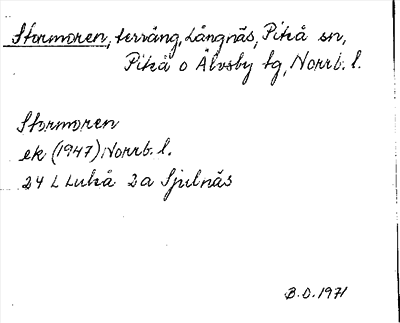 Stormoren, terräng, Långnäs, Piteå sn,
Piteå o Älvsby tg, Norrb. l.
Stormoren
ek (1947) Norrb. l.
24 L Luleå 2a Sjulnäs
B.D. 1971